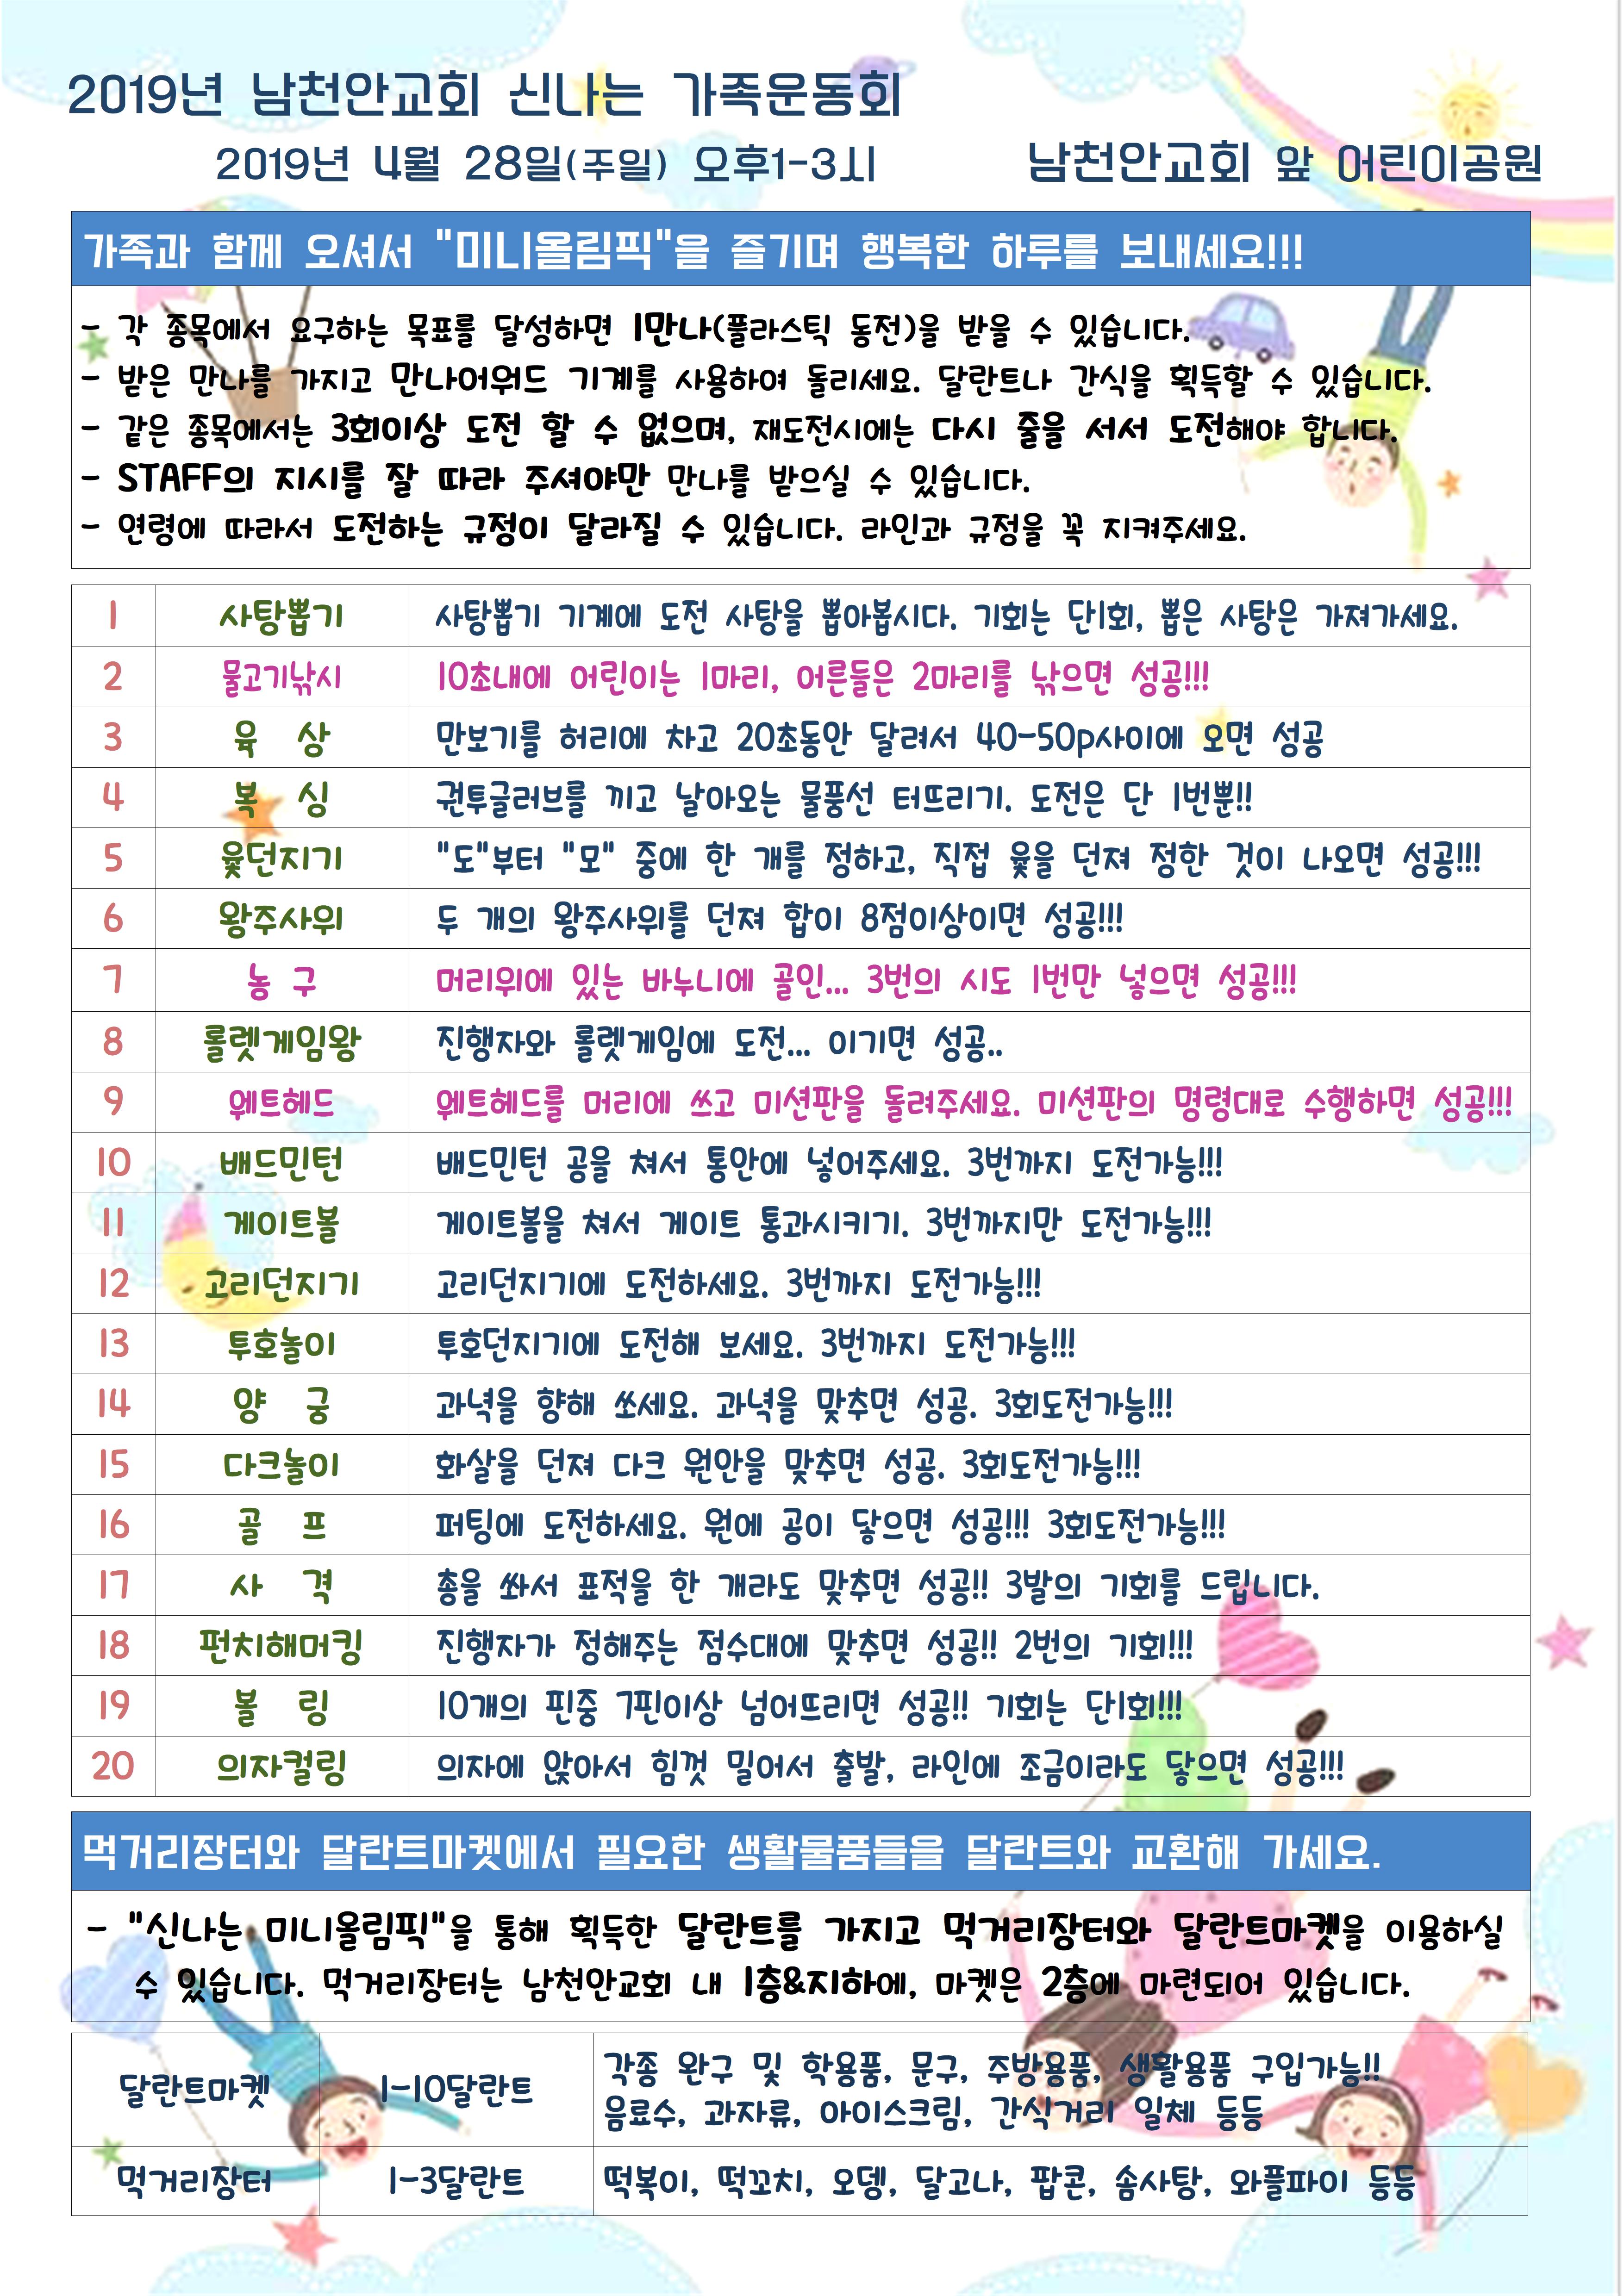 2019년 남천안교회 신나는 가족운동회
2019년 4월 28일(주일) 오후1-3시 남천안교회 앞 어린이공원
가족과 함께 오셔서 "미니올림픽"을 즐기며 행복한 하루를 보내세요!!!
- 각 종목에서 요구하는 목표를 달성하면 1만나(플라스틱 동전)을 받을 수 있습니다.
- 받은 만나를 가지고 만나어워드 기계를 사용하여 돌리세요. 달란트나 간식을 획득할 수 있습니다.
- 같은 종목에서는 3회이상 도전 할 수 없으며, 재도전시에는 다시 줄을 서서 도전해야 합니다.
- STAFF의 지시를 잘 따라 주셔야만 만나를 받으실 수 있습니다.
- 연령에 따라서 도전하는 규정이 달라질 수 있습니다. 라인과 규정을 꼭 지켜주세요.
1 사탕뽑기 사탕뽑기 기계에 도전 사탕을 뽑아봅시다. 기회는 단1회, 뽑은 사탕은 가져가세요.
2 물고기낚시 10초내에 어린이는 1마리, 어른들은 2마리를 낚으면 성공!!!
3 육 상 만보기를 허리에 차고 20초동안 달려서 40-50p사이에 오면 성공
4 복 싱 권투글러브를 끼고 날아오는 물풍선 터뜨리기. 도전은 단 1번뿐!!
5 윷던지기 "도"부터 "모" 중에 한 개를 정하고, 직접 윷을 던져 정한 것이 나오면 성공!!!
6 왕주사위 두 개의 왕주사위를 던져 합이 8점이상이면 성공!!!
7 농 구 머리위에 있는 바누니에 골인... 3번의 시도 1번만 넣으면 성공!!!
8 롤렛게임왕 진행자와 롤렛게임에 도전... 이기면 성공..
9 웨트헤드 웨트헤드를 머리에 쓰고 미션판을 돌려주세요. 미션판의 명령대로 수행하면 성공!!!
10 배드민턴 배드민턴 공을 쳐서 통안에 넣어주세요. 3번까지 도전가능!!!
11 게이트볼 게이트볼을 쳐서 게이트 통과시키기. 3번까지만 도전가능!!!
12 고리던지기 고리던지기에 도전하세요. 3번까지 도전가능!!!
13 투호놀이 투호던지기에 도전해 보세요. 3번까지 도전가능!!!
14 양 궁 과녁을 향해 쏘세요. 과녁을 맞추면 성공. 3회도전가능!!!
15 다크놀이 화살을 던져 다크 원안을 맞추면 성공. 3회도전가능!!!
16 골 프 퍼팅에 도전하세요. 원에 공이 닿으면 성공!!! 3회도전가능!!!
17 사 격 총을 쏴서 표적을 한 개라도 맞추면 성공!! 3발의 기회를 드립니다.
18 펀치해머킹 진행자가 정해주는 점수대에 맞추면 성공!! 2번의 기회!!!
19 볼 링 10개의 핀중 7핀이상 넘어뜨리면 성공!! 기회는 단1회!!!
20 의자컬링 의자에 앉아서 힘껏 밀어서 출발, 라인에 조금이라도 닿으면 성공!!!
먹거리장터와 달란트마켓에서 필요한 생활물품들을 달란트와 교환해 가세요.
- "신나는 미니올림픽"을 통해 획득한 달란트를 가지고 먹거리장터와 달란트마켓을 이용하실
수 있습니다. 먹거리장터는 남천안교회 내 1층&지하에, 마켓은 2층에 마련되어 있습니다.
달란트마켓 1-10달란트 각종 완구 및 학용품, 문구, 주방용품, 생활용품 구입가능!!
음료수, 과자류, 아이스크림, 간식거리 일체 등등
먹거리장터 1-3달란트 떡볶이, 떡꼬치, 오뎅, 달고나, 팝콘, 솜사탕, 와플파이 등등